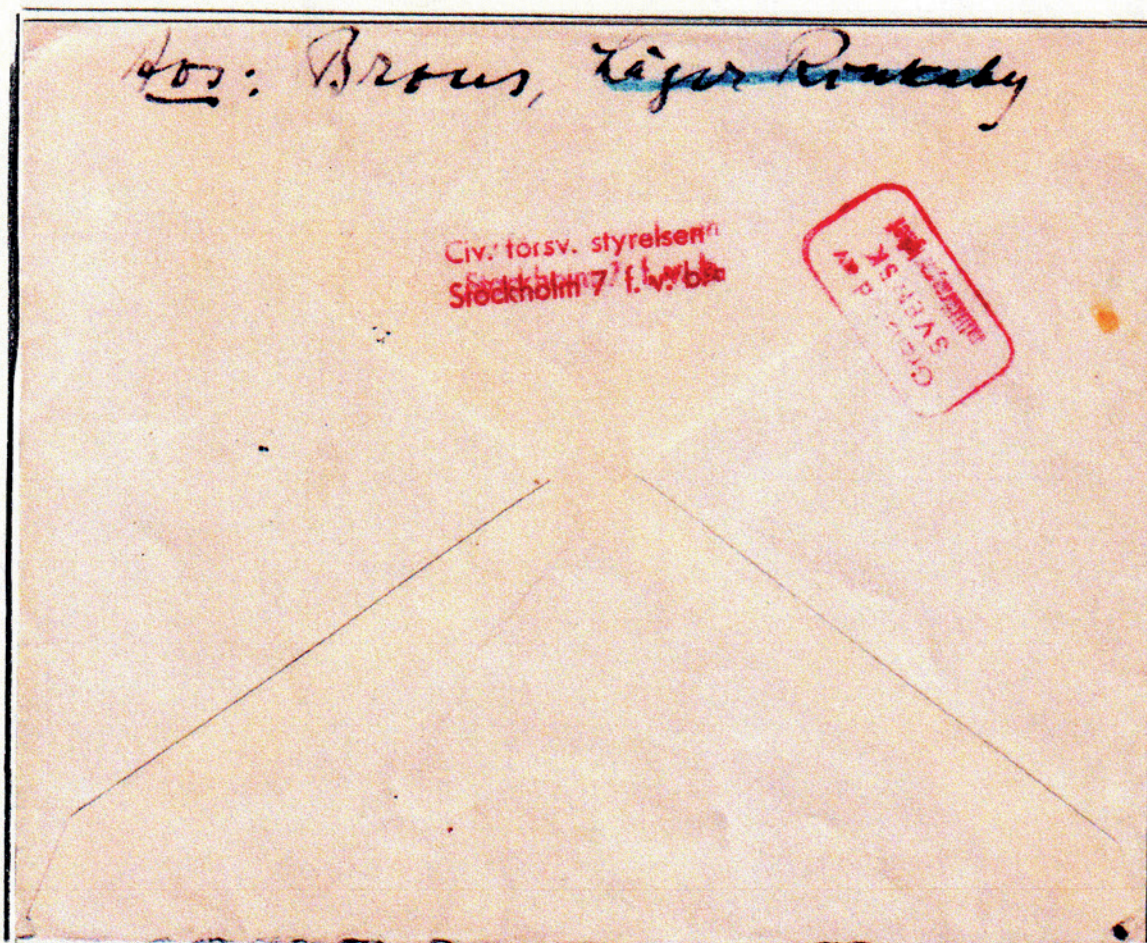 Hos: Brous, Läger Rinkaby
Civ. försv. styrelsen
Stockholm 7 f. v. b.
av
SVENSK